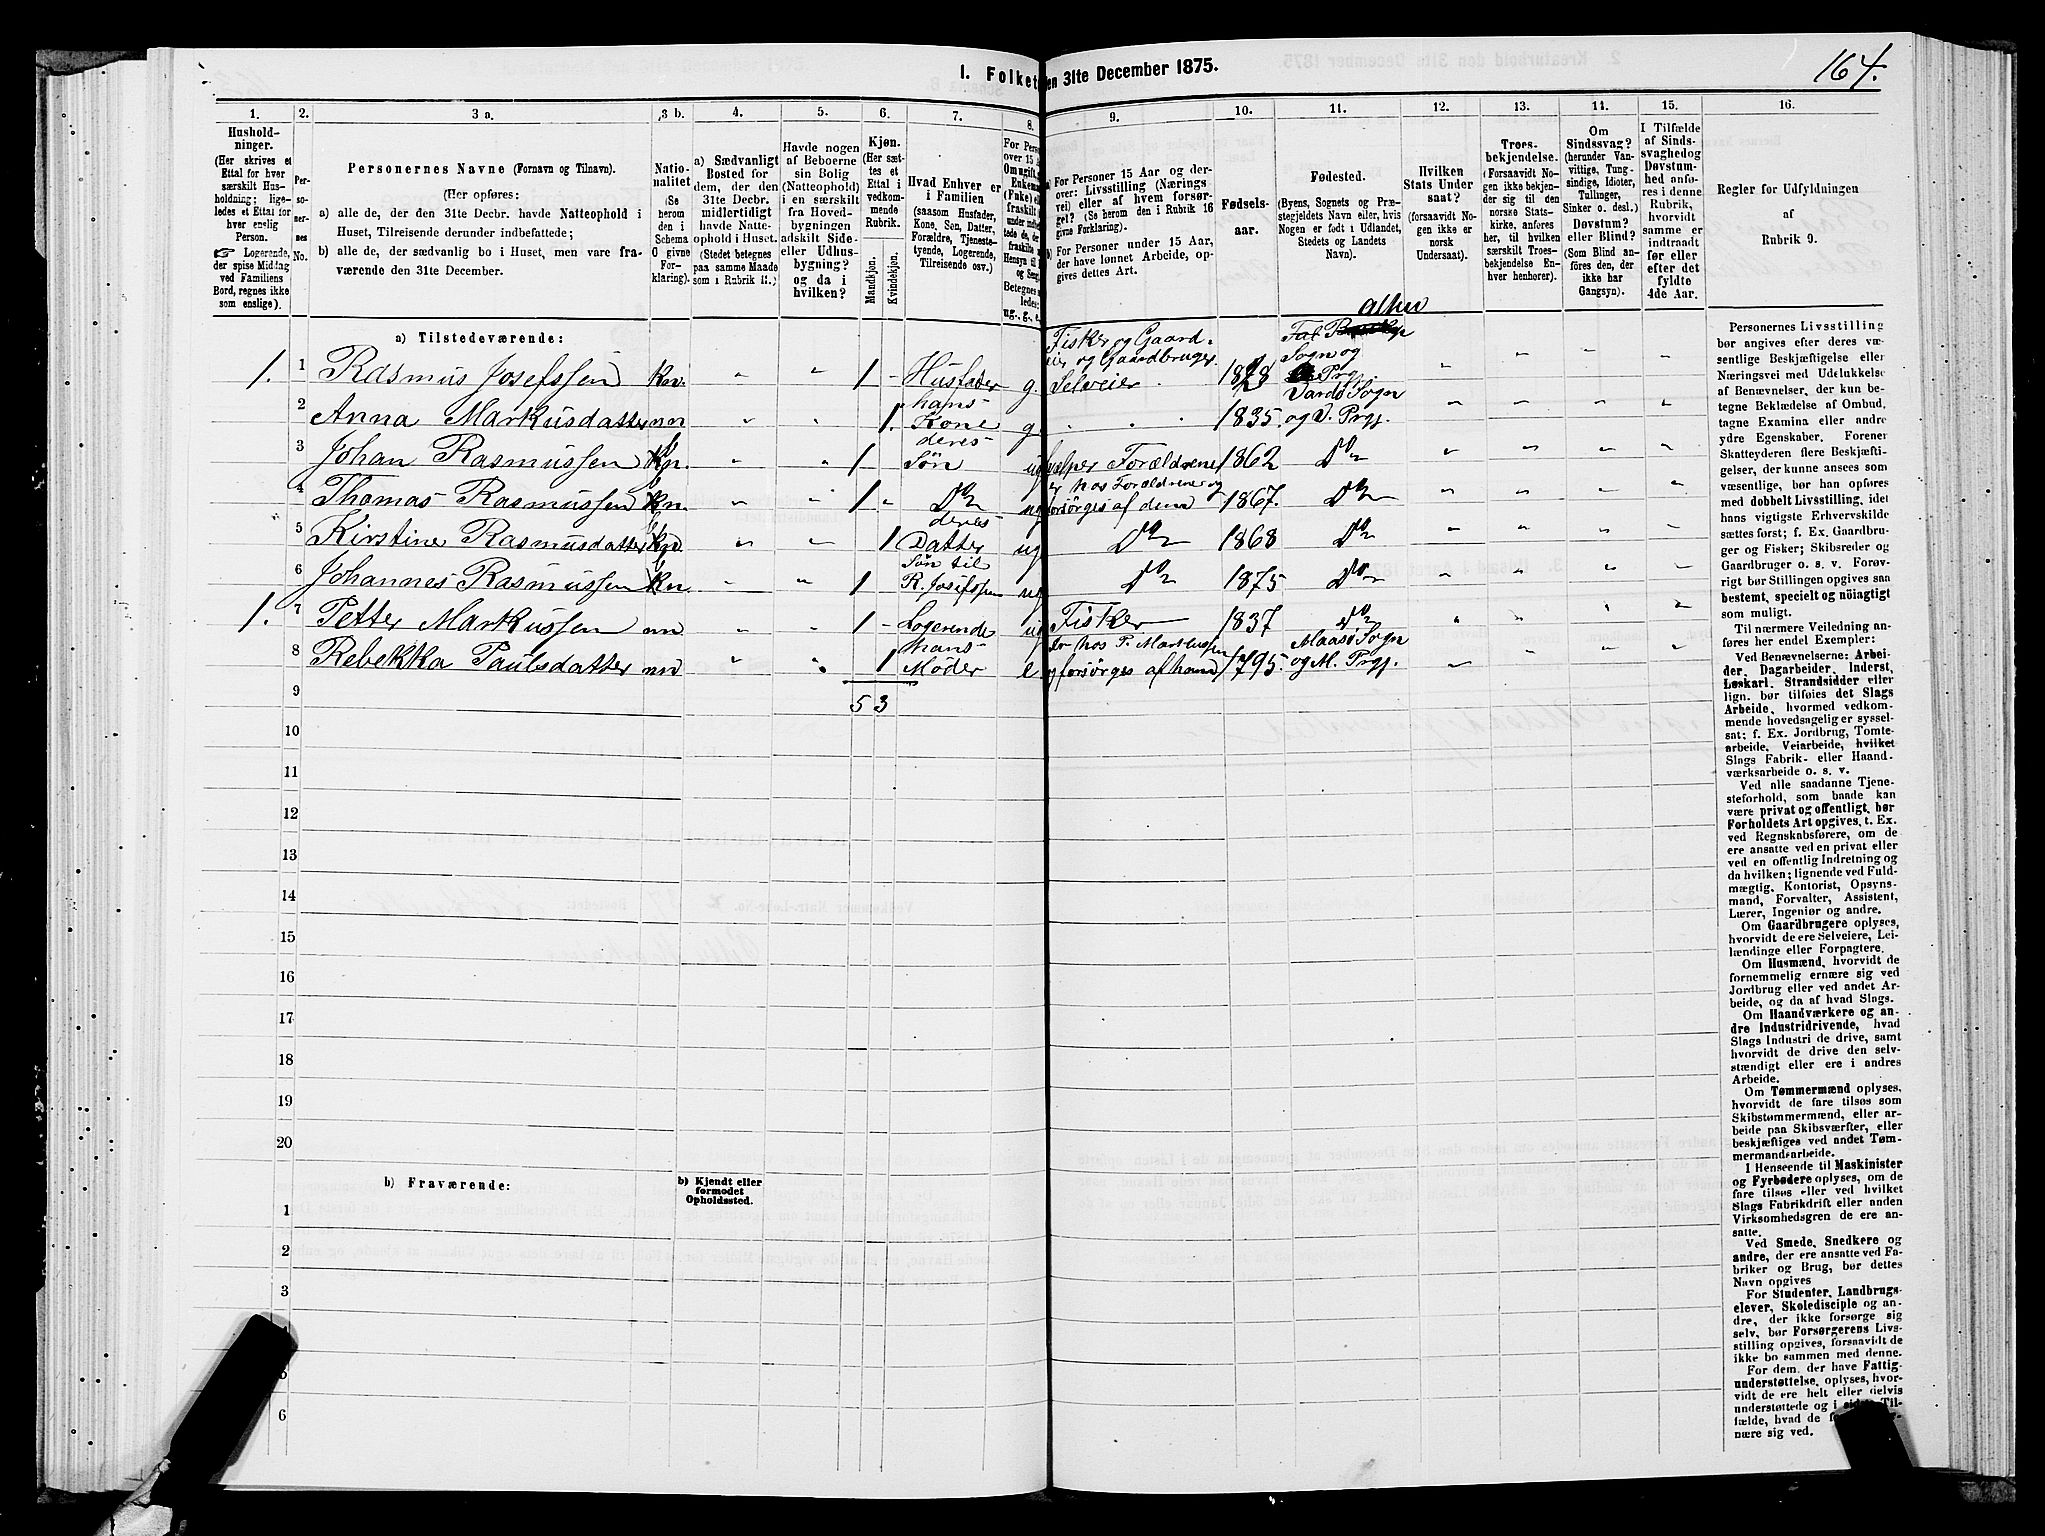 164.
I. Folket
en 31te December 1875.
1. 2. 3 a. 3 b. 4. 5. 6. 7. 8. 9. 10. 11. 12. 13. 14. 15. 16.
Hushold-
ninger.
(Her skrives et
Ettal for hver
særskilt Hus-
holdning; lige-
ledes et Ettal for
hver enslig
Person.
☞ Logerende,
der spise Middag
ved Familiens
Bord, regnes ikke
som enslige).
Per-
so-
ner-
nes
No.
Personernes Navne (Fornavn og Tilnavn).
(Her opføres:
a) alle de, der den 31te Decbr. havde Natteophold i
Huset, Tilreisende derunder indbefattede;
b) alle de, der sædvanlig bo i Huset, men vare fra-
værende den 31te December.
Natio-
nalitet
(Se
herom
den i
Schema
O givne
For-
klaring).
a) Sædvanligt
Bosted for
dem, der den
31te Decbr.
midlertidigt
havde Natte-
ophold i Huset.
(Stedet betegnes
paa samme Maade
som i Rubrik 11.)
Havde nogen
af Beboerne
sin Bolig
(Natteophold)
i en særskilt
fra Hoved-
bygningen
adskilt Side-
eller Udhus-
bygning?
og da i
hvilken?
Kjøn.
(Her sæt-
tes et
Ettal i
vedkom-
mende
Rubrik.
Mandkjøn.
Kvindekjøn.
Hvad Enhver er
i Familien
(saasom Husfader,
Kone, Søn, Datter,
Forældre, Tjeneste-
tyende, Logerende,
Tilreisende osv.)
For Pers
over 15 A
Om ugift,
Enkema
(Fnke) el
fraskilt
Hensyn til
og Seng
Betegnes s
ledes:
ug., g., e.
a) For Personer 15 Aar og der-
over: Livsstilling (Nærings
vei) eller af hvem forsør-
get? (Se herom den i Rubrik 16
givne Førklaring).
b) For Personer under 15 Aar,
der have lønnet Arbeide, op-
gives dettes Art.
Fødsels-
aar.
Fødested.
(Byens, Sognets og Præ-
stegjeldets Navn eller, hvis
Nogen er født i Udlandet,
Stedets og Landets
Navn).
Hvilken
Stats Under
saat?
(forsaavidt No-
gen ikke er
norsk
Undersaat).
Troes-
bekjendelse.
(Forsaavidt No-
gen ikke bekjen-
der sig til den
norske Stats-
kirke, anføres
her, til hvilken
særskilt Troes-
bekjendelse En-
hver henhorer).
Om
Sindssvag?
(herunder Van-
vittige, Tung-
sindige, Idioter,
Tullinger,
Sinker o. desl.)
Døvstum?
eller Blind?
(Som Blind an-
føres den, der
ikke har
Gangsyn).
I Tilfælde
af Sinds-
svaghed og
Døvstum-
hed anfø-
res i denne
Rubrik,
hvorvidt
samme er
indtraadt
før eller
efter det
fyldte
4de Aar.
Regler for Udfyldningen
af
Rubrik 9.
a) Tilstedeværende:
1. 1 Rasmus Josefssen kn. " " 1 - Husfader g. Fisker og Gaard=eier og Gaardbruger Selveier Sogn og Prgj.
2 Anna Markusdatter nn " " 1. hans Kone g " 1835. Vardø Sogn og V. Prgj.
3 Johan Rasmussen " " 1 deres Søn ug hjælper Forældrene 1862 Do
4 Thomas Rasmussen " " 1 " Do ug er hos Forældrene og forsørges af dem 1867. Do
5 Kirstine Rasmusdatter " " 1 deres Datter ug Do 1868 Do
6 Johannes Rasmussen " " 1 Søn til R. Josefssen ug Do 1875 Do
1. 7 Petter Markussen nn " " 1 - Logerende ug Fisker 1837 Do
8 Rebekka Paulsdatter nn " " 1 hans Moder e er hos P. Markussen og forsørges af ham 1795. Maasø Sogn og M. Prgj.
9 5 3
10
11
12
13
14
15
16
17
18
19
20
b) Fraværende:
b) Kjendt eller
formodet
Opholdssted.
1
2
3
4
5
6
Personernes Livsstilling
bør angives efter deres væ-
sentlige Beskjæftigelse eller
Næringsvei med Udelukkelse
af Benævnelser, der kun be-
tegne Beklædelse af Ombud,
tagne Examina eller andre
ydre Egenskaber. Forener
Skatteyderen flere Beskjæfti-
gelser, der kunne ansees som
væsentlige, bør han opføres
med dobbelt Livsstilling, idet
hans vigtigste Erhvervskilde
sættes først; f. Ex. Gaardbru-
ger og Fisker; Skibsreder og
Gaardbruger o. s. v. Forøv-
rigt bør Stillingen opgives saa
bestemt, specielt og nöiagtigt
som muligt.
Til nærmere Veiledning an-
føres her endel Exempler:
Ved Benævnelserne: Arbei-
der, Dagarbeider, Inderst,
Løskarl, Strandsidder eller
lign. bør tilføies det Slags
Arbeide, hvormed vedkom-
mende hovedsagelig er syssel-
sat; f. Ex. Jordbrug, Tomte-
arbeide, Veiarbeide, hvilket
Slags Fabrik- eller Haand-
værksarbeide o. s. v.
Ved alle saadanne Tjene-
steforhold, som baade kan
være privat og offentligt, bør
Forholdets Art opgives, t. Ex.
ved Regnskabsførere, om de
ere ansatte ved en privat eller
ved en offentlig Indretning og
da hvilken; lignende ved Fuld-
mægtig, Kontorist, Opsyns-
mand, Forvalter, Assistent,
Lærer, Ingeniør og andre.
Om Gaardbrugere oplyses,
hvorvidt de ere Selveiere, Lei-
lændinge eller Forpagtere.
Om Husmænd, hvorvidt de
fornemmelig ernære sig ved
Jordbrug eller ved andet Ar-
beide, og da af hvad Slags.
Om Haandværkere og an-
dre Industridrivende, hvad
Slags Industri de drive, samt
hvorvidt de drive den selv-
stændigt eller ere i andres
Arbeide.
Om Tømmermænd oplyses,
hvorvidt de fare tilsøs som
Skibstømmermænd, eller ar-
beide paa Skibsværfter, eller
beskjæftiges ved andet Tøm-
mermandsarbeide.
I Henseende til Maskinister
og Fyrbødere oplyses, om de
fare tilsøs eller ved hvilket
Slags Fabrikdrift eller anden
Virksomhedsgren de ere an-
satte.
Ved Smede, Snedkere og
andre, der ere ansatte ved Fa-
briker og Brug, bør dettes
Navn opgives
For Studenter, Landbrugs-
elever, Skoledisciple og an-
dre, der ikke forsørge sig
selv, bør Forsørgerens Livs-
stilling opgives, forsaavidt de
ikke bo sammen med denne.
For dem, der have Fattig-
understøttelse, oplyses, hvor-
vidt de ere helt eller delvis
understøttede og i Til-
fælde, hvad de
nære sig ved.